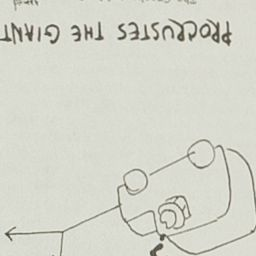 PROCRUSTES THE GIANT